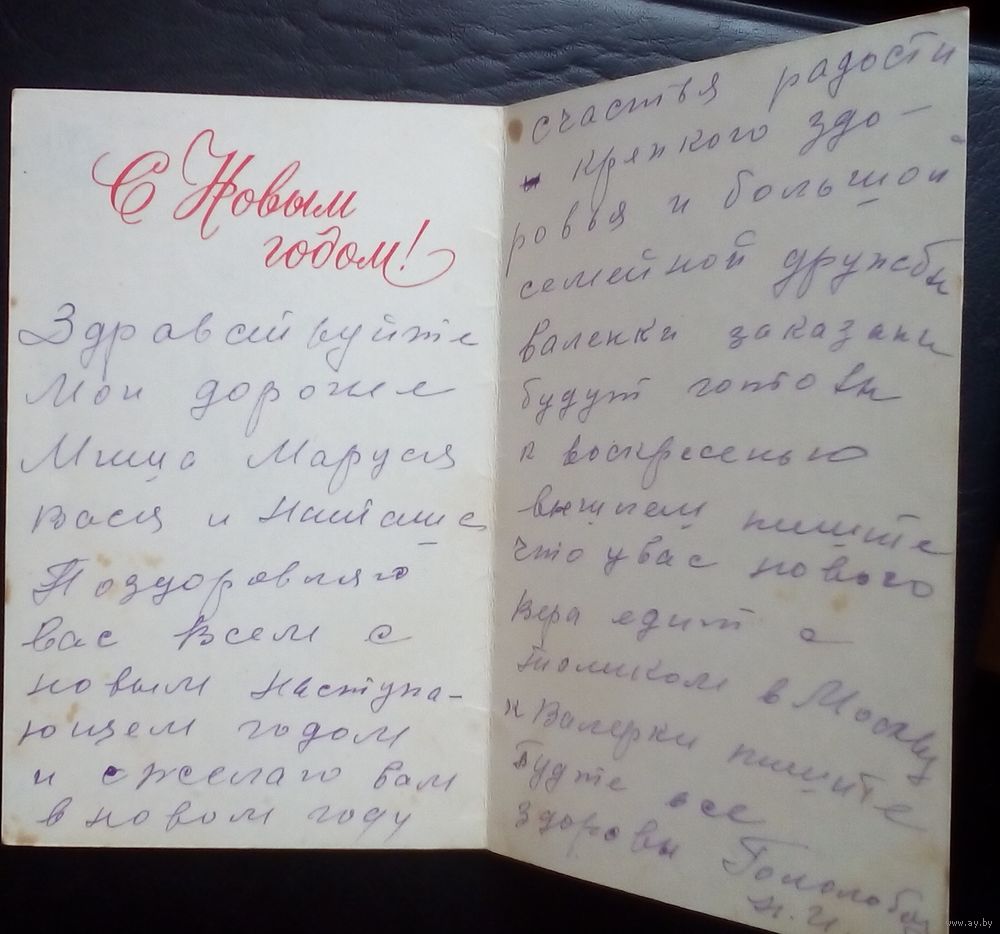 С Новым
годом!
Здравствуйте
Мои дорогие
Миша Маруся
Вася и Наташа
Поздоровляю
Вас Всем с
новым наступа-
ющем годом
и желаю вам
в новом году
счастья радости
и крепкого здо-
ровья и большой
семейной дружбы
валенки заказани
будут готовы
к воскресенью
вышлем пишите
что у вас нового
Вера едит с
Толиком в Москву
к Валерки пишите
Будте все
здоровы
Н.И.
www.ay.by